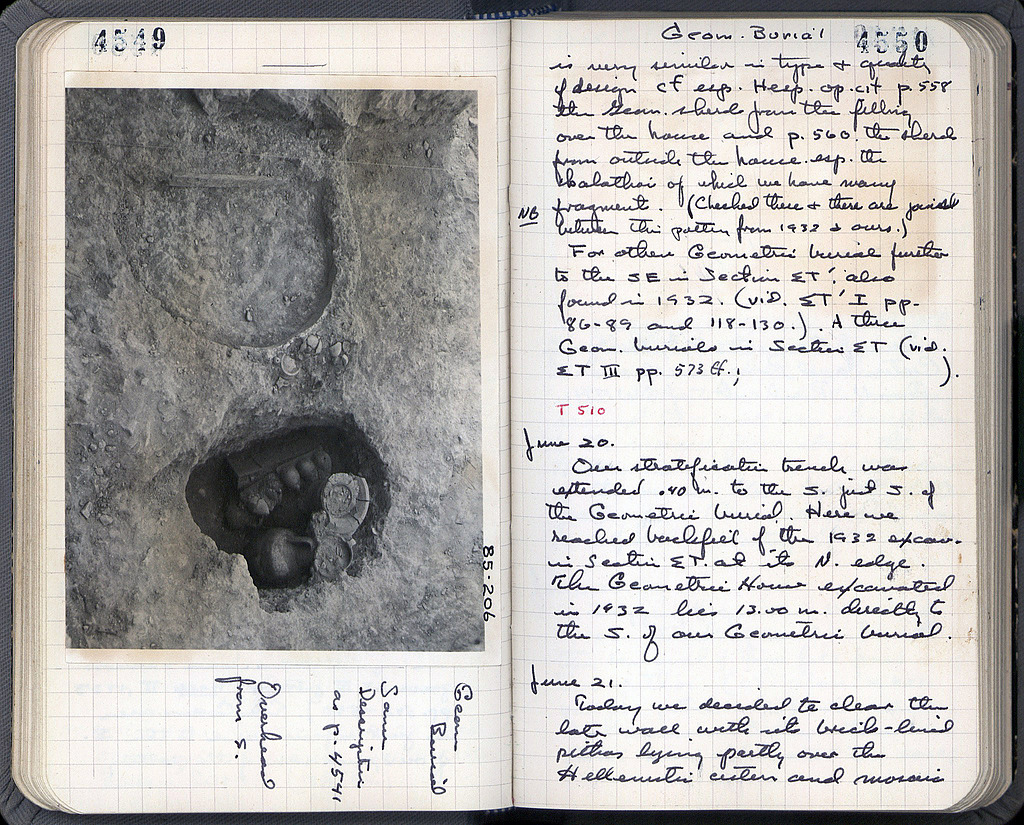 4549
85-206
Geom
Burial
Same
Description
as p. 4541
Overhead
from S.
Geom. Burial
4550
is very similar in type & quality
of design cf esp. Hesp. op. cit p. 558
the Geom. sherds from the filling
over the house and p. 560 the sherds
from outside the house esp. the
kalathoi of which we have many
fragments. (Checked these & there are joins
NB
between the pottery from 1932 & ours.)
For other Geometric burial further
to the SE in Section ΣΤ' also
found in 1932. (vid. ΣΤ' I pp.
86-89 and 118-130.). A three
Geom. burials in Section ΣΤ (vid.
ΣΤ III pp. 573 ff.; ).
T 510
June 20.
Our stratification trench was
extended .40 m. to the S. just S. of
the Geometric burial. Here we
reached backfill of the 1932 excav.
in Section ΣΤ. at its N. edge.
The Geometric House excavated
in 1932 lies 13.00 m. directly to
the S. of our Geometric burial.
June 21.
Today we decided to clear the
late wall with its brick-lined
pithos lying partly over the
Hellenistic cistern and mosaic